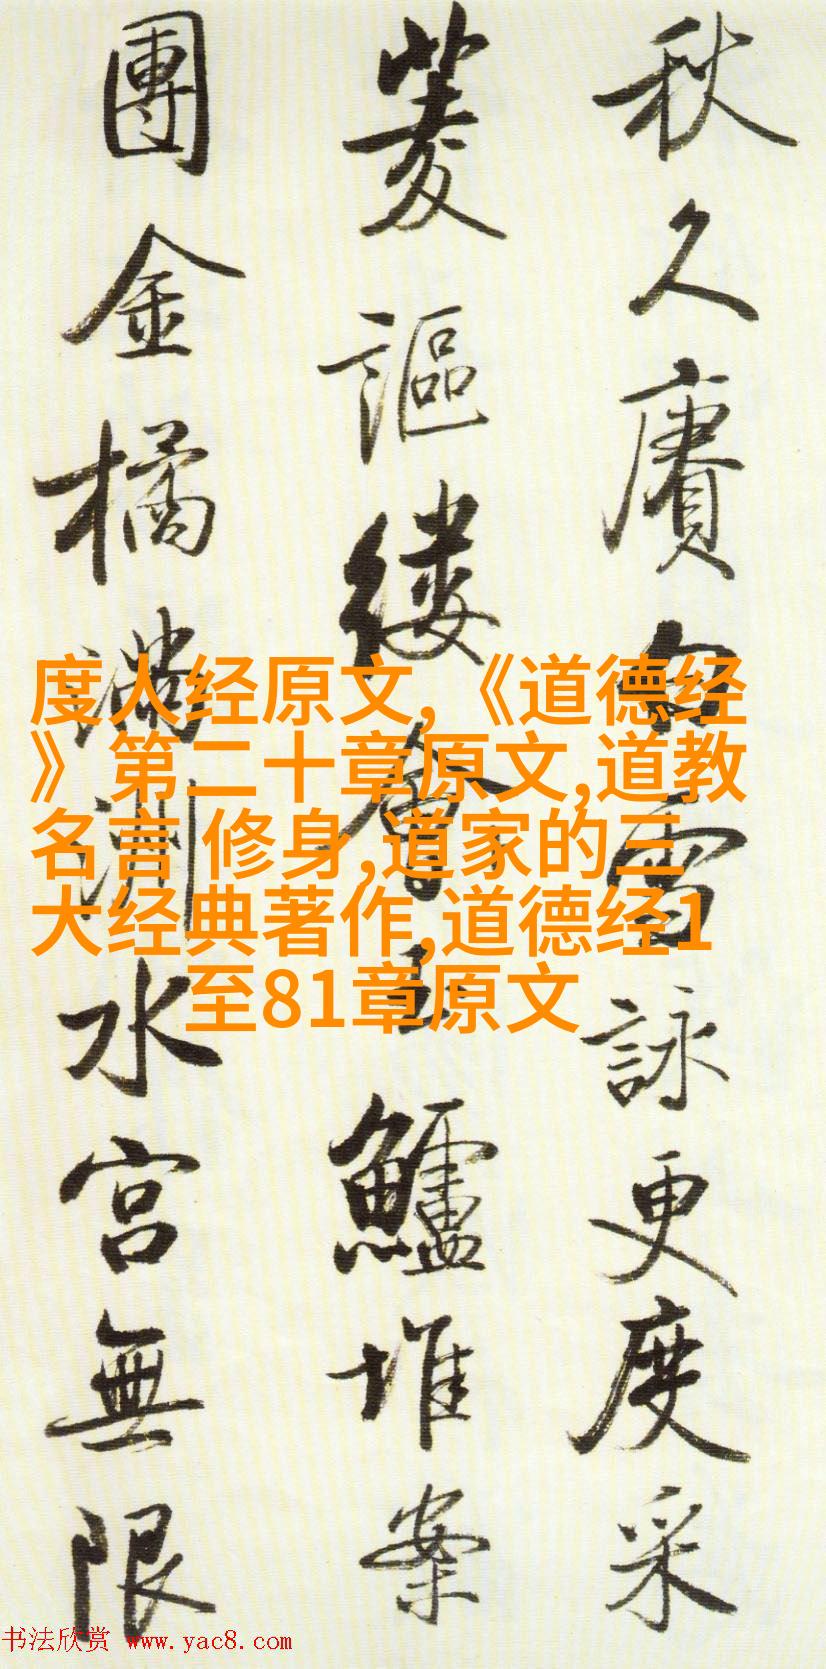 秋久賡白雪詠更度采
菱謳縷會玉鱸堆案
團金橘滿洲水宮無限
度人经原文,《道德经
》第二十章原文,道教
名言 修身,道家的三
大经典著作,道德经1
至81章原文
书法欣赏 www.yac8.com